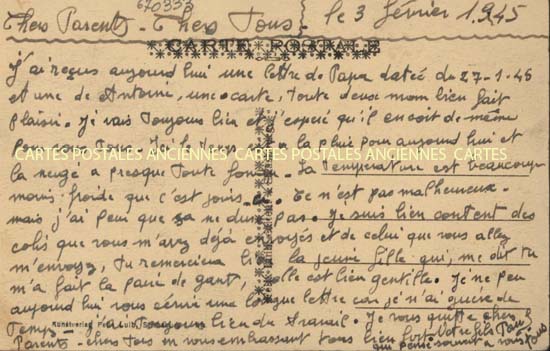 670353
Chers Parents - Chers Tous - le 3 février 1945
CARTE POSTALE
J'ai reçus aujourd hui une lettre de Papa datée du 27-1-45
et une de Antoine, une carte, Toute deux mom bien fait
plaisir. Je vais Toujours bien et j'espère qu'il en soit de même
pour vous Tous. la pluie pour aujourd hui et
CARTES POSTALES ANCIENNES CARTES POSTALES ANCIENNES CARTES
la neige a presque Toute La Température est beaucoup
moins froide que c'est jours. Ce n'est pas malheureux.
mais j'ai peur que sa ne dure pas. Je suis bien content des
colis que vous m'avez déjà envoyés et de celui que vous allez
m'envoyez, Tu remercieras la jeune fille qui, me dit tu
m'a fait la paire de gant, elle est bien gentille. Je ne peu
aujourd hui vous écrire une longue lettre car je n'ai guère de
Temps - j'ai Toujours bien du Travail. Je vous quitte chers
Parents - chers tous en vous embrassant tous bien fort Votre fils
qui pense souvent a vous Tous
Kunstverlag